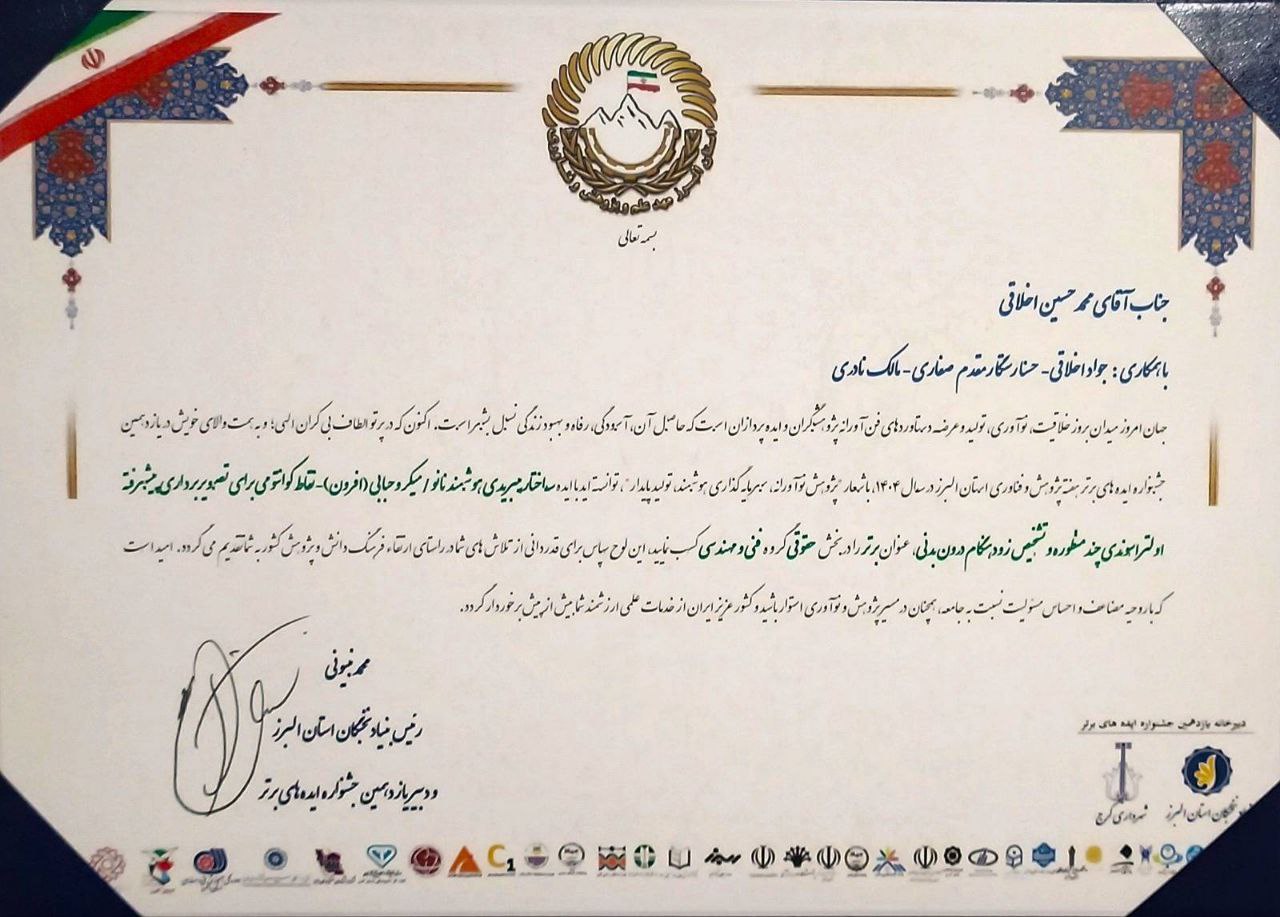 استان البرز مهد علم و پژوهش و فناوری
بسمه تعالی
جناب آقای محمد حسین اخلاقی
با همکاری : جواد اخلاقی - حسنا رستگار مقدم صفاری - مالک نادری
جهان امروز میدان بروز خلاقیت، نوآوری، تولید و عرضه دستاوردهای فن آورانه پژوهشگران و ایده پردازان است که حاصل آن، آسودگی، رفاه و بهبود زندگی نسل بشر است. اکنون که در پرتو الطاف بی کران الهی؛ و به همت والای خویش در یازدهمین
جشنواره ایده های برتر هفته پژوهش و فناوری استان البرز در سال ۱۴۰۴، با شعار "پژوهش نوآورانه، سرمایه گذاری هوشمند، تولید پایدار"، توانسته اید با ایده ساختار هیبریدی هوشمند نانو / میکرو حبابی (افرون) - نقاط کوانتومی برای تصویربرداری پیشرفته
اولتراسوندی چند منظوره و تشخیص زودهنگام درون بدنی، عنوان برتر را در بخش حقوقی گروه فنی و مهندسی کسب نمایید. این لوح سپاس برای قدردانی از تلاش های شما در راستای ارتقاء فرهنگ دانش و پژوهش کشور به شما تقدیم می گردد. امید است
که با روحیه مضاعف و احساس مسئولیت نسبت به جامعه، همچنان در مسیر پژوهش و نوآوری استوار باشید و کشور عزیز ایران از خدمات علمی ارزشمند شما بیش از پیش برخوردار گردد.
محمد نبیونی
رئیس بنیاد نخبگان استان البرز
و دبیر یازدهمین جشنواره ایده های برتر
دبیرخانه یازدهمین جشنواره ایده های برتر
نخبگان استان البرز
شهرداری کرج
C1